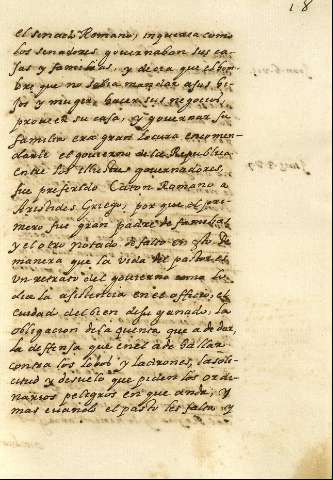 18
el senado Romano, inqueria como
los senadores gouernaban sus ca-
sas y familias, y decia que el hom-
bre que no sabia mandar a sus hi-
jos y muger, hacer sus negocios,
proueer su casa, y gouernar su
familia era gran locura encomen-
darle el gouierno de la Republica
entre los illustres gouernadores,
fue preferido Caton Romano a
Aristides Griego, por que el pri-
mero fue gran padre de familias
y el otro notado de falto en esto. De
manera que la vida del pastor es
vn retrato del gouierno como lo
dira la asistencia en el officio, el
cuidado del bien de su ganado, la
obligacion de la quenta que a de dar,
la deffensa que en el a de hallar
contra los lobos y ladrones, la soli-
citud y desuelo que piden los ordi-
narios peligros en que anda, y
mas quando el pasto les falta y